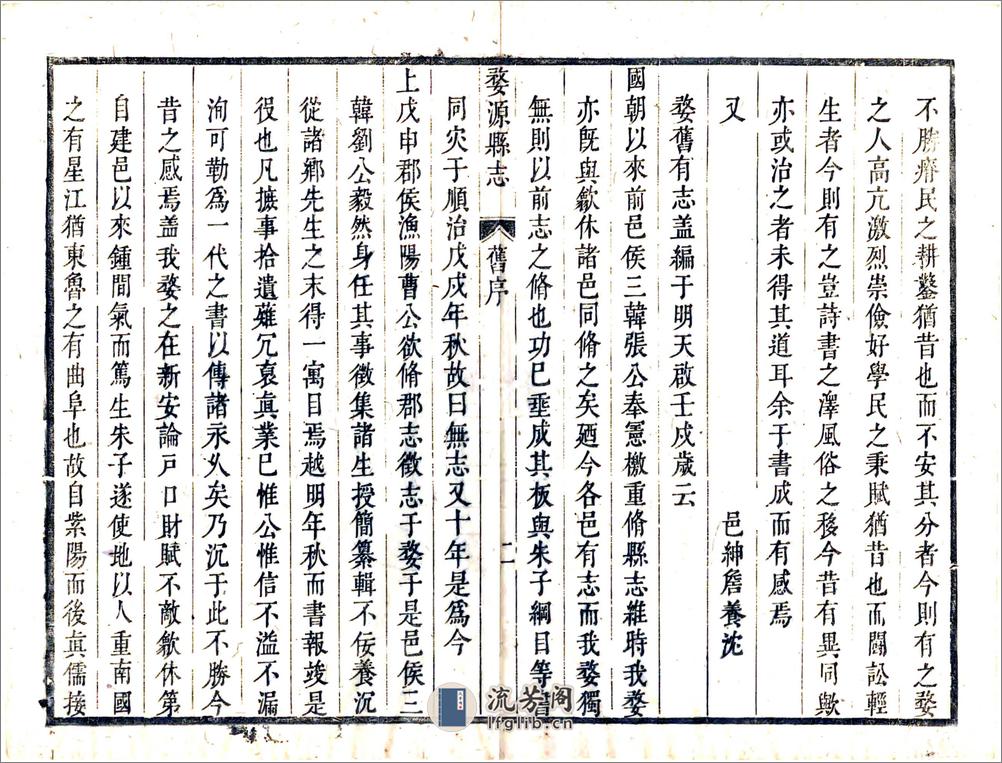 不勝瘠民之耕鑿猶昔也而不安其分者今則有之婺
之人高亢激烈崇儉好學民之秉賦猶昔也而鬭訟輕
生者今則有之豈詩書之澤風俗之移今昔有異同歟
亦或治之者未得其道耳余于書成而有感焉
又
邑紳詹養沈
婺舊有志盖編于明天啟壬戌歲云
國朝以來前邑侯三韓張公奉憲檄重脩縣志維時我婺
亦旣與歙休諸邑同脩之矣廼今各邑有志而我婺獨
無則以前志之脩也功巳垂成其板與朱子綱目等書
婺源縣志
舊序
二
同灾于順治戊戌年秋故曰無志又十年是爲今
上戊申郡侯漁陽曹公欲脩郡志徵志于婺于是邑侯三
韓劉公毅然身任其事徵集諸生授簡纂輯不佞養沉
從諸鄉先生之末得一寓目焉越明年秋而書報竣是
役也凡摭事拾遺薙冗裒眞業巳惟公惟信不溢不漏
洵可勒爲一代之書以傳諸永久矣乃沉于此不勝今
昔之感焉盖我婺之在新安論戸口財賦不敵歙休第
自建邑以來鍾間氣而篤生朱子遂使地以人重南國
之有星江猶東魯之有曲阜也故自紫陽而後眞儒接
流芳阁
lfglib.cn